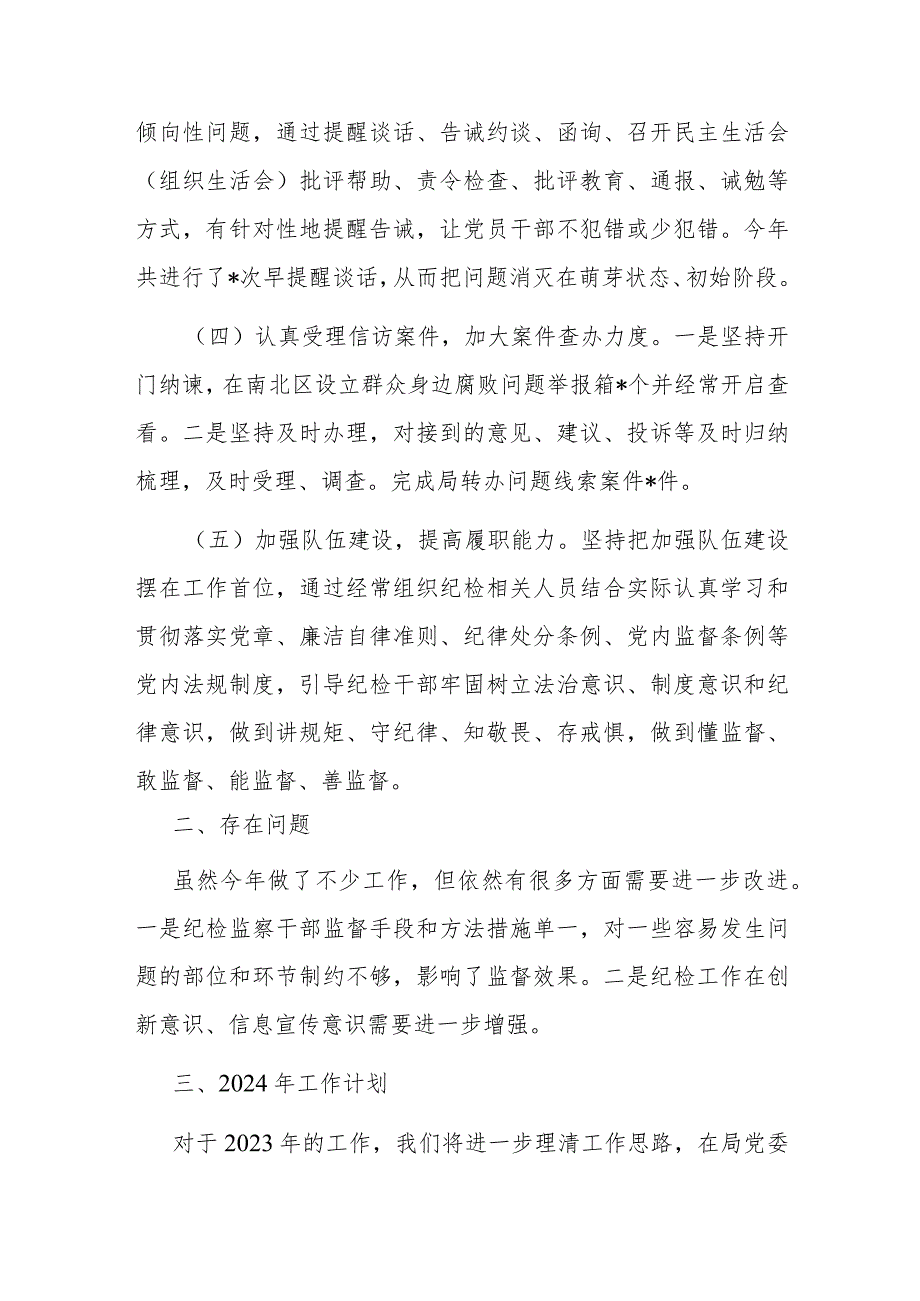 倾向性问题，通过提醒谈话、告诫约谈、函询、召开民主生活会
（组织生活会）批评帮助、责令检查、批评教育、通报、诫勉等
方式，有针对性地提醒告诫，让党员干部不犯错或少犯错。今年
共进行了*次早提醒谈话，从而把问题消灭在萌芽状态、初始阶段。
（四）认真受理信访案件，加大案件查办力度。一是坚持开
门纳谏，在南北区设立群众身边腐败问题举报箱*个并经常开启查
看。二是坚持及时办理，对接到的意见、建议、投诉等及时归纳
梳理，及时受理、调查。完成局转办问题线索案件*件。
（五）加强队伍建设，提高履职能力。坚持把加强队伍建设
摆在工作首位，通过经常组织纪检相关人员结合实际认真学习和
贯彻落实党章、廉洁自律准则、纪律处分条例、党内监督条例等
党内法规制度，引导纪检干部牢固树立法治意识、制度意识和纪
律意识，做到讲规矩、守纪律、知敬畏、存戒惧，做到懂监督、
敢监督、能监督、善监督。
二、存在问题
虽然今年做了不少工作，但依然有很多方面需要进一步改进。
一是纪检监察干部监督手段和方法措施单一，对一些容易发生问
题的部位和环节制约不够，影响了监督效果。二是纪检工作在创
新意识、信息宣传意识需要进一步增强。
三、2024 年工作计划
对于 2023 年的工作，我们将进一步理清工作思路，在局党委